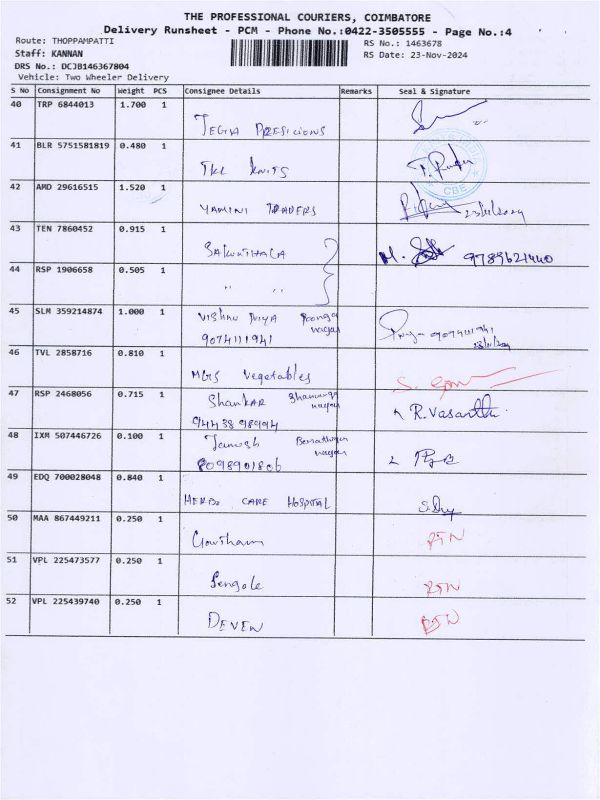 THE PROFESSIONAL COURIERS, COIMBATORE
Delivery Runsheet - PCM - Phone No.:0422-3505555 - Page No.:4
Route: THOPPAMPATTI
RS No.: 1463678
Staff: KANNAN
RS Date: 23-Nov-2024
DRS No.: DCJB146367804
Vehicle: Two Wheeler Delivery
S No Consignment No Weight PCS Consignee Details Remarks Seal & Signature
40 TRP 6844013 1.700 1
41 BLR 5751581819 0.480 1
TKL KNITS
CBE
42 AMD 29616515 1.520 1
YAMINI TRADERS 23/11/2024
43 TEN 7860452 0.915 1
SAKUNTHALA M.
44 RSP 1906658 0.505 1
" "
45 SLM 359214874 1.000 1
Vishnu Priya Poonga nagar
9074111941
46 TVL 2858716 0.810 1
MGS Vegetables
47 RSP 2468056 0.715 1
Shankar nagar R. Vasantha
9443898994
48 IXM 507446726 0.100 1
nagar
8098901806
49 EDQ 700028048 0.840 1
HERBZ CARE HOSPITAL
50 MAA 867449211 0.250 1
Gowtham RTN
51 VPL 225473577 0.250 1
Pengale RTN
52 VPL 225439740 0.250 1
DEVEN RTN